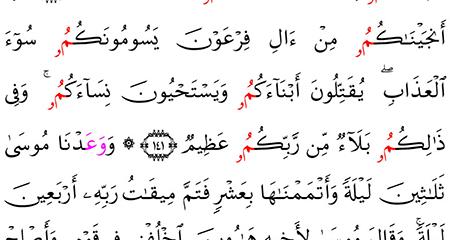 أَنجَيْنَٰكُمُۥ مِنْ ءَالِ فِرْعَوْنَ يَسُومُونَكُمُۥ سُوٓءَ
اَلْعَذَابِۖ يُقَتِّلُونَ أَبْنَآءَكُمُۥ وَيَسْتَحْيُونَ نِسَآءَكُمُۥۚ وَفِي
ذَٰلِكُمُۥ بَلَآءٌ مِّن رَّبِّكُمُۥ عَظِيمٌ ١٤١ ۞ وَوَعَدْنَا مُوسَىٰ
ثَلَٰثِينَ لَيْلَةً وَأَتْمَمْنَٰهَا بِعَشْرٍ فَتَمَّ مِيقَٰتُ رَبِّهِۦٓ أَرْبَعِينَ
لَيْلَةًۚ وَقَالَ مُوسَىٰ لِأَخِيهِ هَٰرُونَ اَخْلُفْنِي فِي قَوْمِي وَأَصْلِحْ